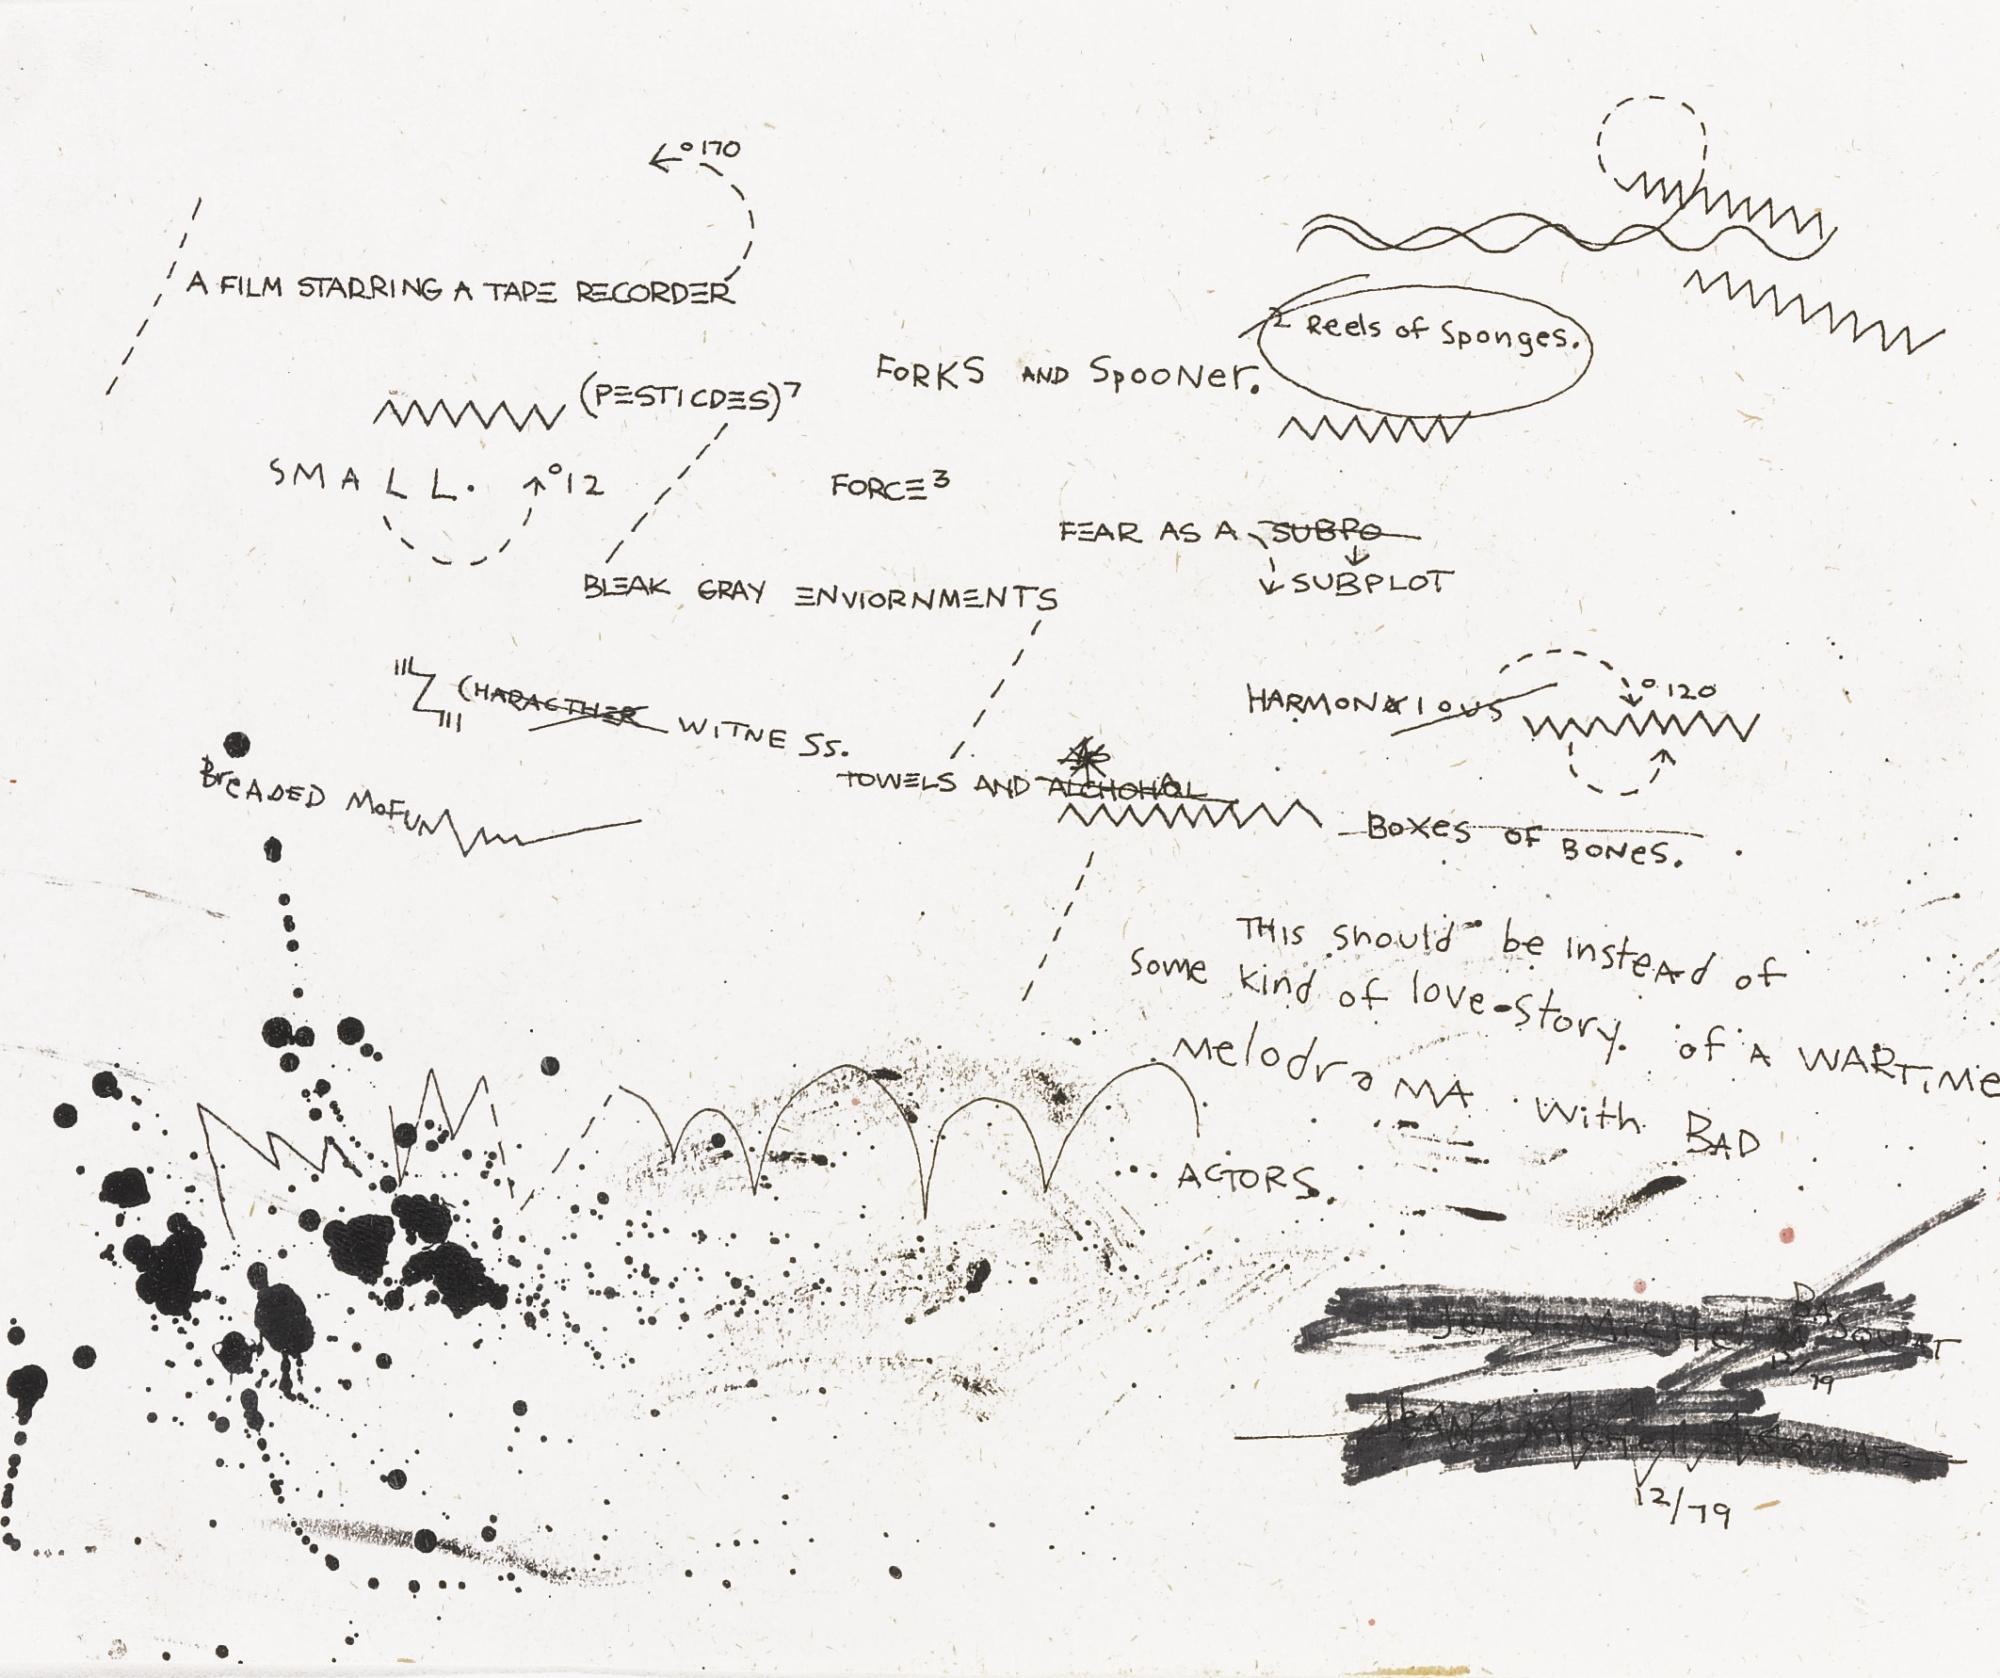 °170
A FILM STARRING A TAPE RECORDER
2 Reels of Sponges.
FORKS AND SpooNer.
(PESTICDES)7
SMALL. °12
FORCE3
FEAR AS A SUBPO
SUBPLOT
BLEAK GRAY ENVIORNMENTS
CHARACTHER WITNESS.
HARMONXIOUS °120
BreADED MOFUN
TOWELS AND ALCHOHOL
BoXes OF BONes.
THis should be insteAd of
some kind of love-story. of A WARTiMe
Melodra MA with BAD
ACTORS.
JeAN-MicHel BASQUIAT
12/79
JEAN MicHel BASQUIAT.
12/79